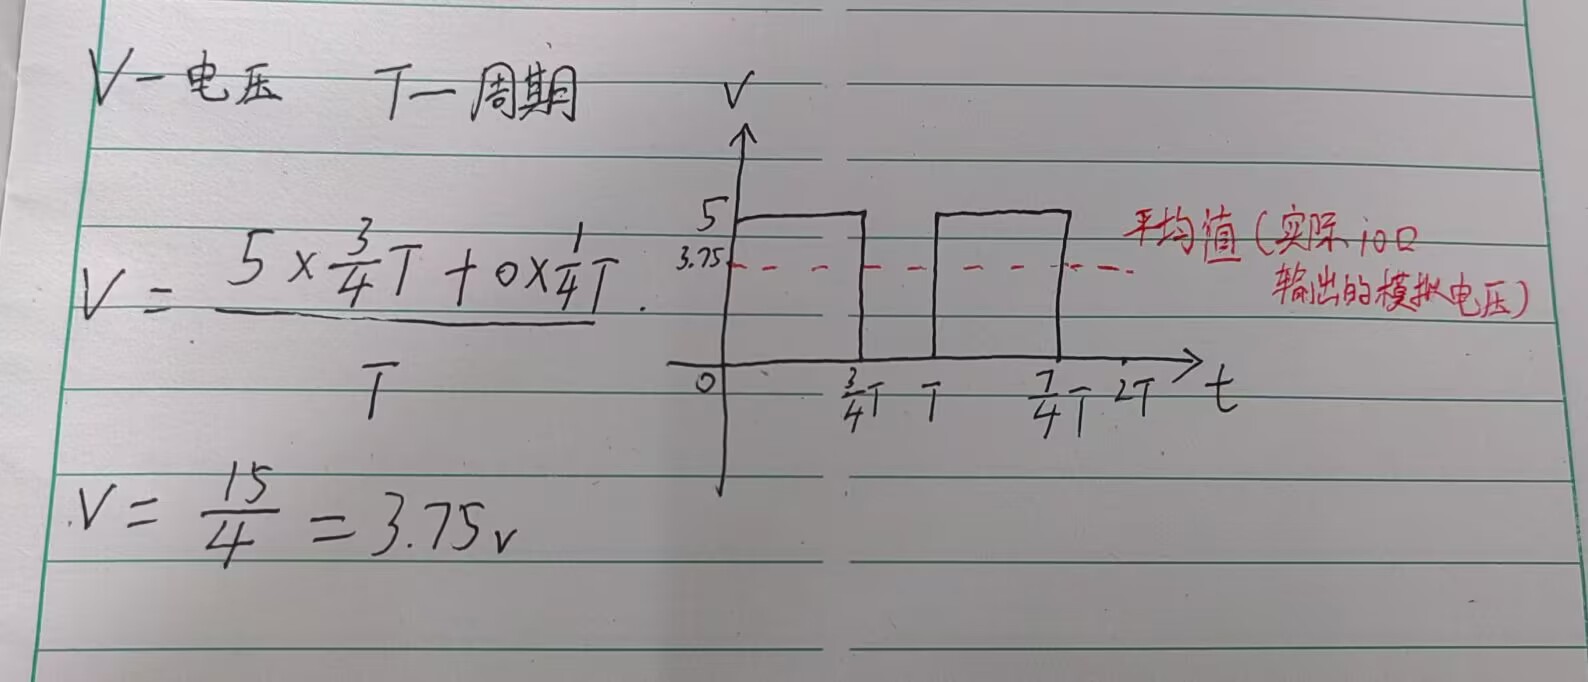 V—电压 T—周期
V = (5×3/4T+0×1/4T)/T
V = 15/4 = 3.75v
V
5
3.75
0
3/4T T 7/4T 2T t
平均值(实际io口
输出的模拟电压)